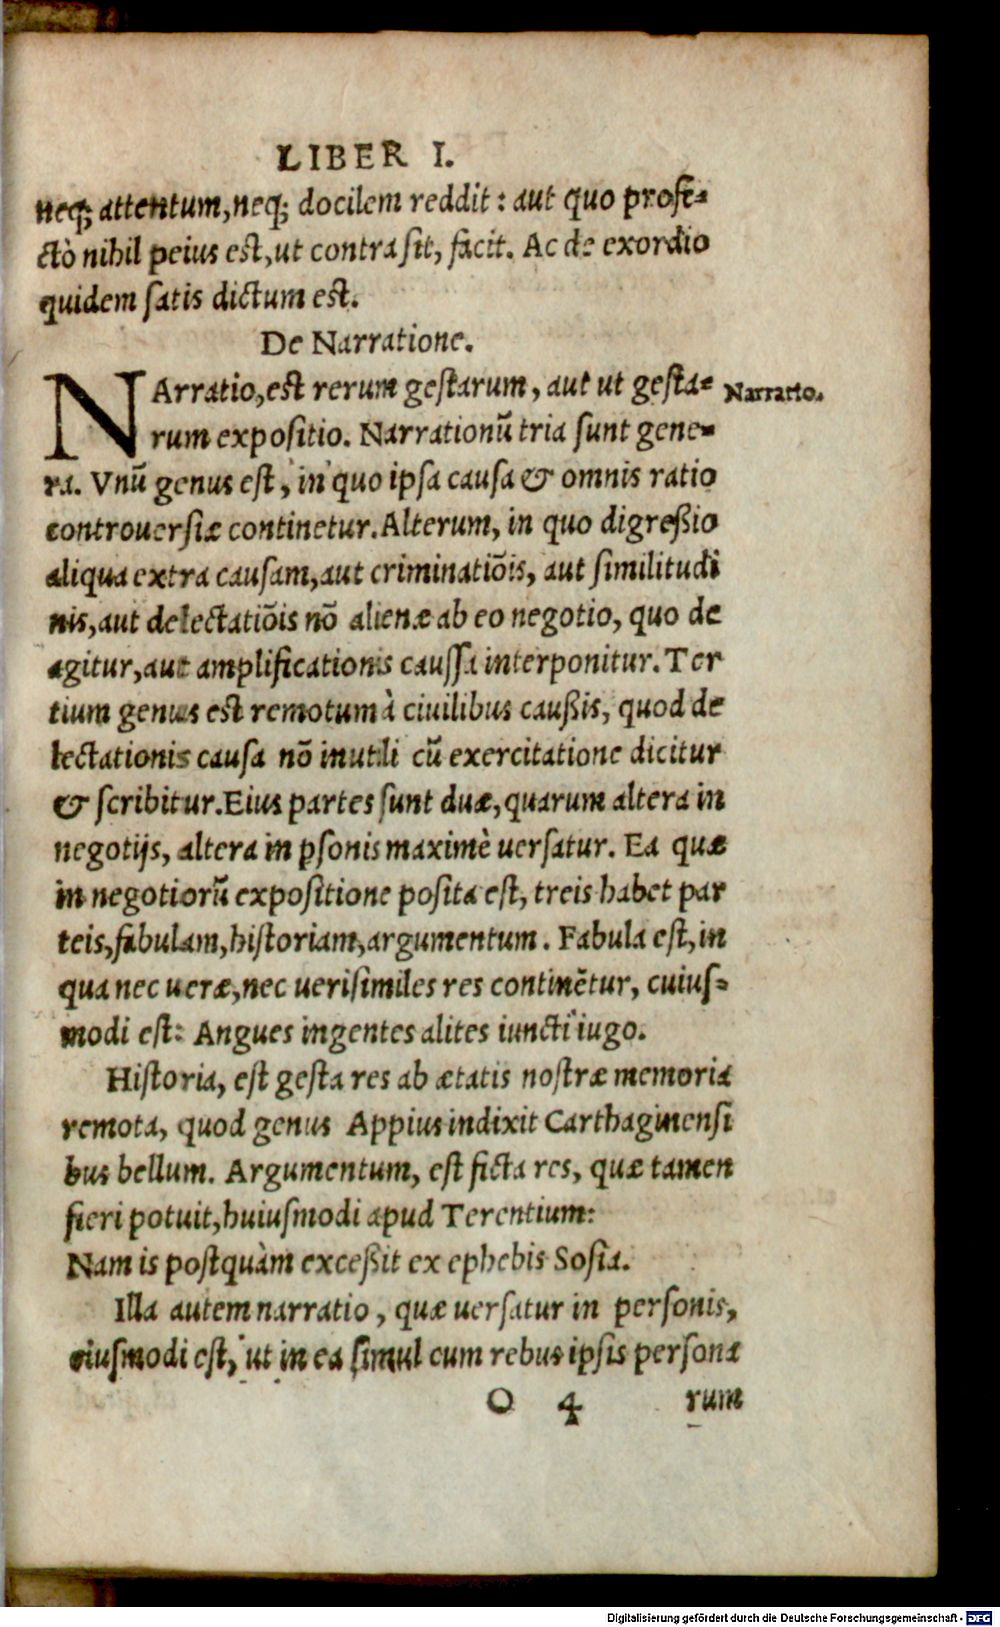 LIBER I.
neq; attentum, neq; docilem reddit: aut quo profe-
ctò nihil peius est, ut contra sit, facit. Ac de exordio
quidem satis dictum est.
De Narratione.
NArratio, est rerum gestarum, aut ut gesta-
Narratio.
rum expositio. Narrationũ tria sunt gene-
ra. Vnũ genus est, in quo ipsa causa & omnis ratio
controuersiæ continetur. Alterum, in quo digreßio
aliqua extra causam, aut criminatiõis, aut similitudi
nis, aut delectatiõis nõ alienæ ab eo negotio, quo de
agitur, aut amplificationis caussa interponitur. Ter
tium genus est remotum à ciuilibus caußis, quod de
lectationis causa nõ inutili cũ exercitatione dicitur
& scribitur. Eius partes sunt duæ, quarum altera in
negotijs, altera in psonis maximè uersatur. Ea quæ
in negotiorũ expositione posita est, treis habet par
teis, fabulam, historiam, argumentum. Fabula est, in
qua nec ueræ, nec uerisimiles res continẽtur, cuius-
modi est: Angues ingentes alites iuncti iugo.
Historia, est gesta res ab ætatis nostræ memoria
remota, quod genus Appius indixit Carthaginensi
bus bellum. Argumentum, est ficta res, quæ tamen
fieri potuit, huiusmodi apud Terentium:
Nam is postquàm exceßit ex ephebis Sosia.
Illa autem narratio, quæ uersatur in personis,
eiusmodi est, ut in ea simul cum rebus ipsis persona
O 4 rum
Digitalisierung gefördert durch die Deutsche Forschungsgemeinschaft - DFG